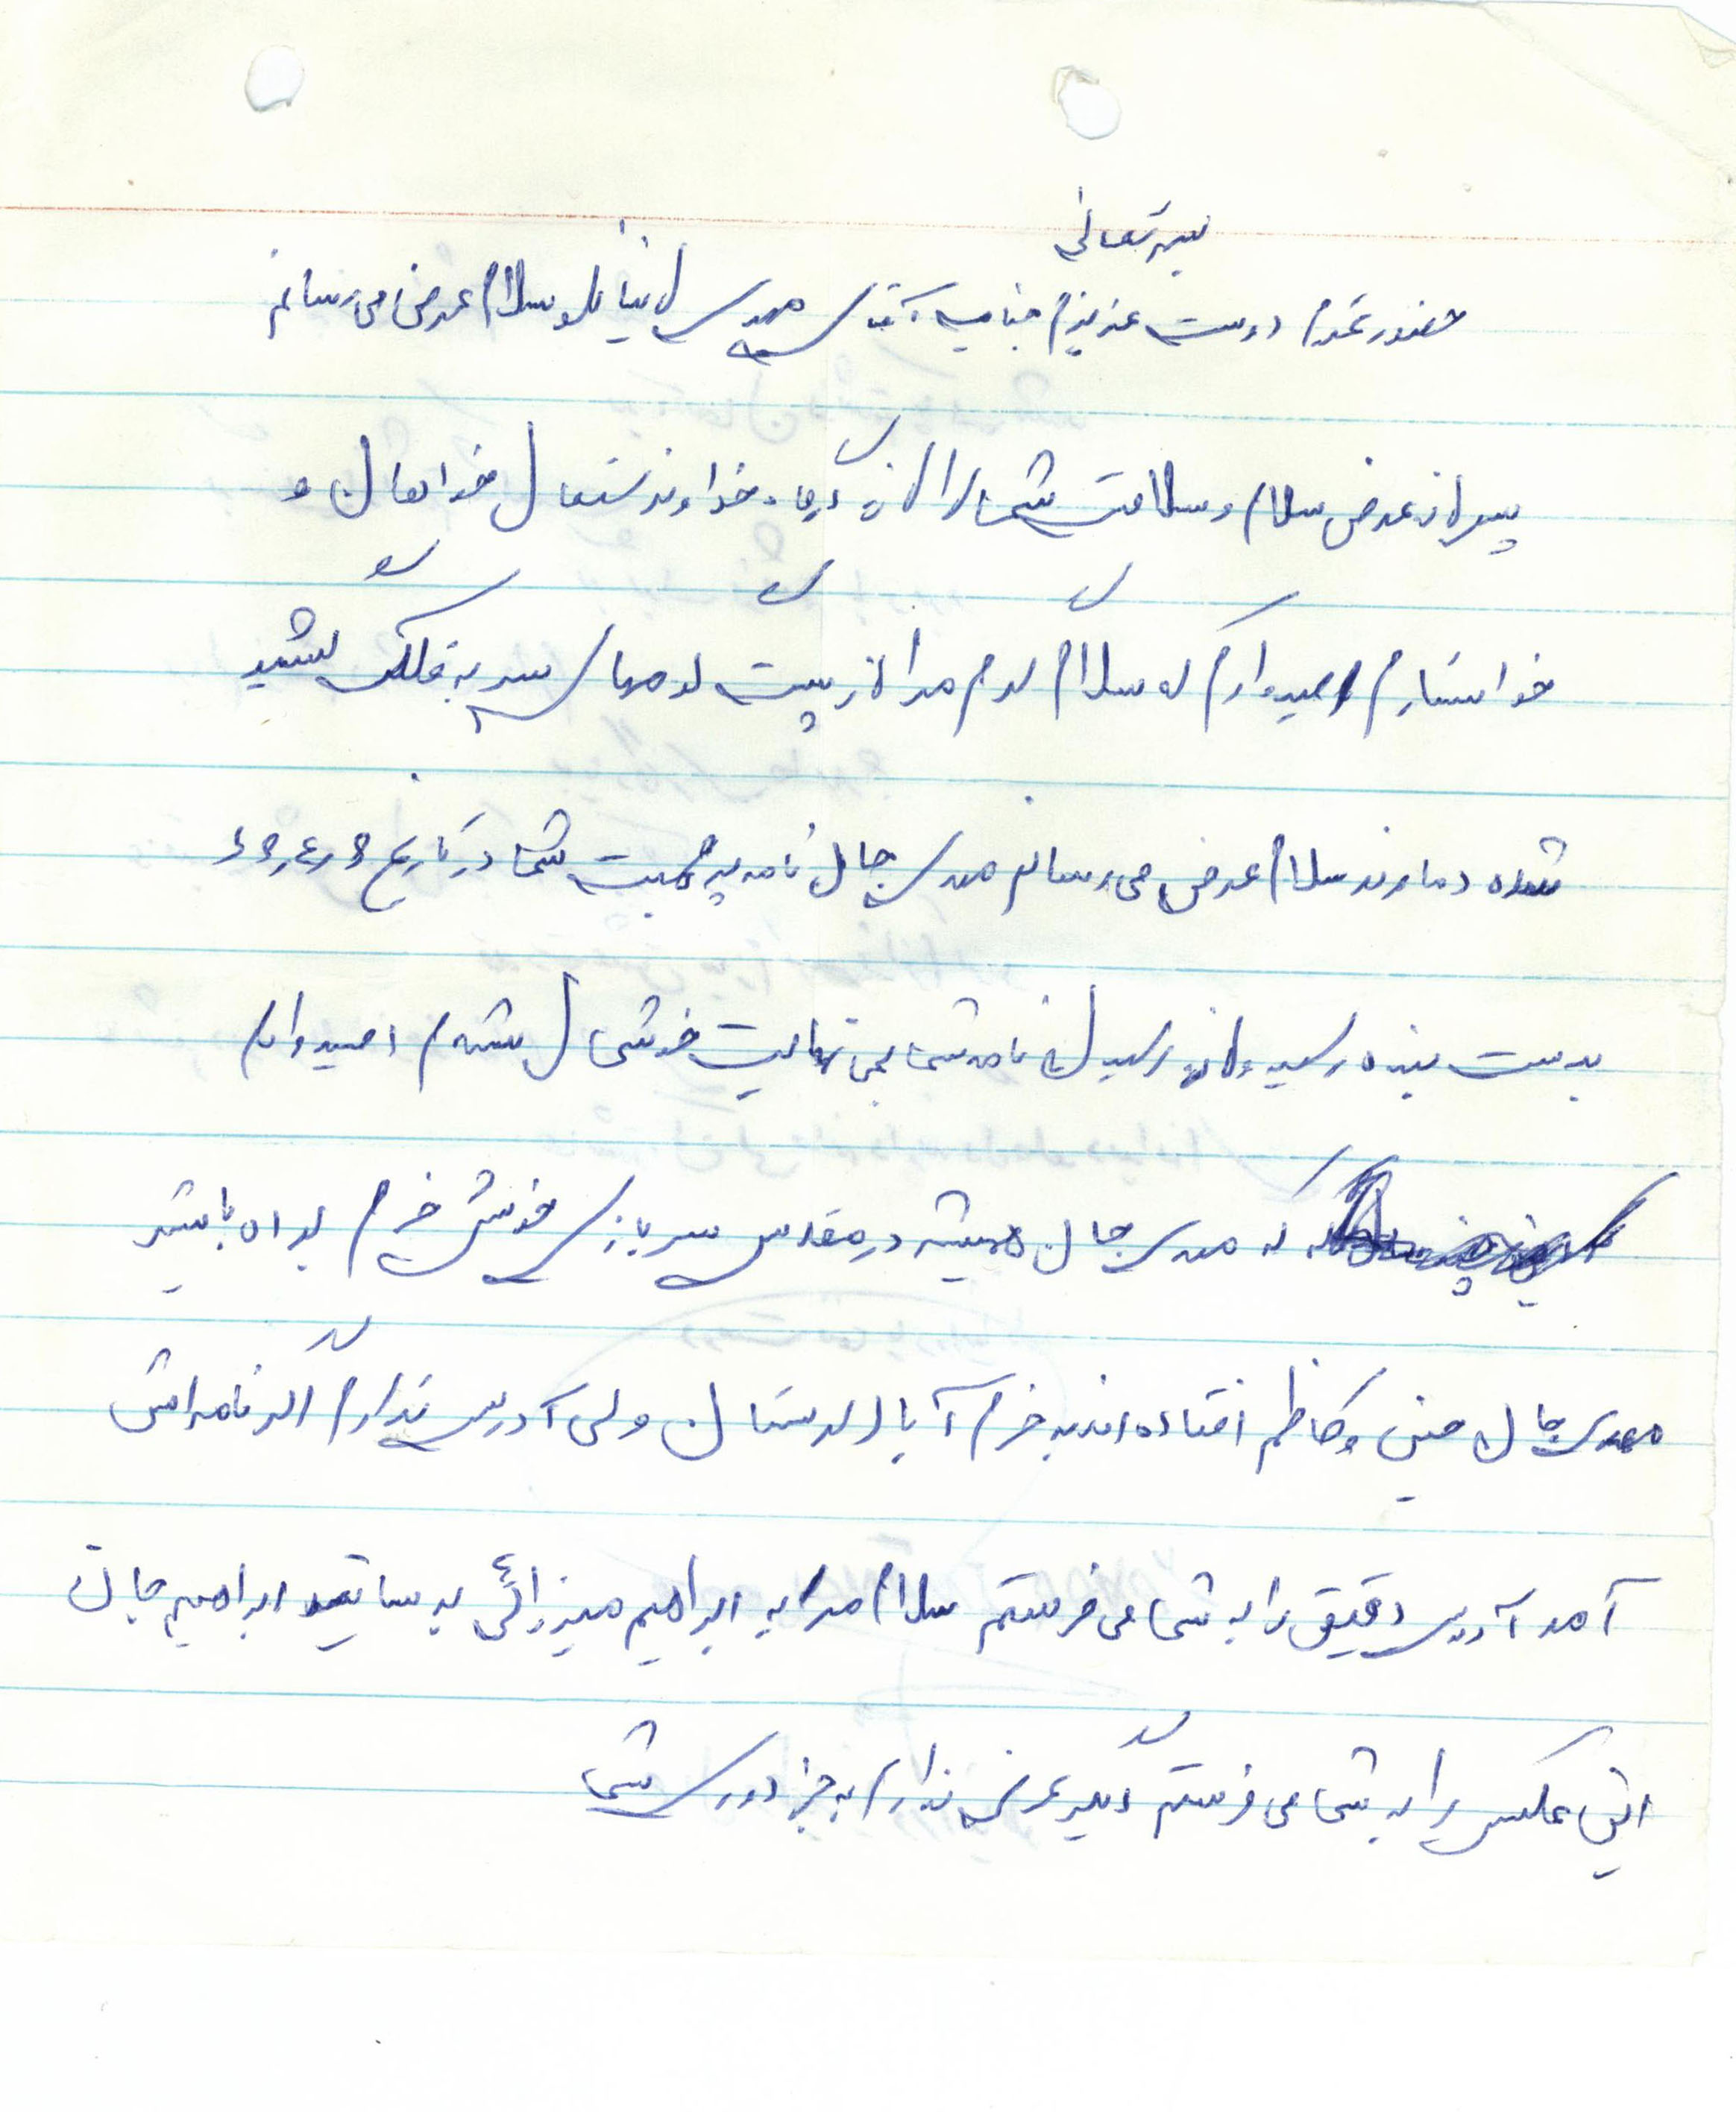 بسمه تعالی
حضور محترم دوست عزیزم جناب آقای مهدی سلام عرض می رسانم
پس از عرض سلام و سلامتی شما را از درگاه خداوند متعال خواهان و
خواستارم امیدوارم که سلام گرم مرا از پشت کوههای سر به فلک کشیده
شده دماوند سلام عرض می رسانم مهدی جان نامه پر محبت شما در تاریخ
بدست بنده رسید و از رسیدن نامه شما بی نهایت خوشحال شدم امیدوارم
که مهدی جان همیشه در مقدس سربازی خوش خرم بوده باشید
مهدی جان و کاظم افتاده اند به خرم آباد لرستان ولی آدرس ندارم اگر نامه اش
آمد آدرس دقیق را به شما می فرستم سلام مرا به ابراهیم میرزائی برسانید ابراهیم جان
این عکس را به شما می فرستم دیگر عرضی ندارم به جز دوری شما